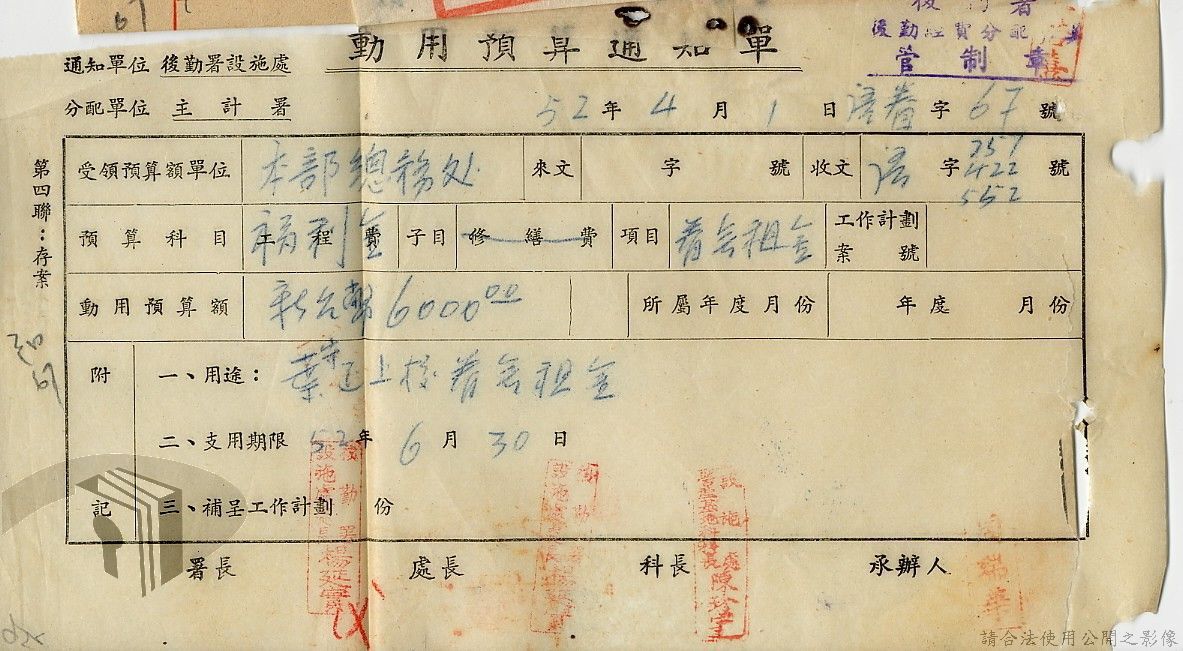 動用預算通知單
後勤經費分配
管制章
通知單位 後勤署設施處
分配單位 主計署
52年4月1日 字67號
第四聯：存案
受領預算額單位 本部總務处 來文 字 號 收文 字 號
757
422
552
預算科目 工程費 福利金 子目 修繕費 項目 眷舍租金 工作計劃案號
動用預算額 新台幣6000.00 所屬年度月份 年度 月份
附記
一、用途： 上校眷舍租金
二、支用期限 52年6月30日
三、補呈工作計劃 份
署長 處長 科長 承辦人
請合法使用公開之影像